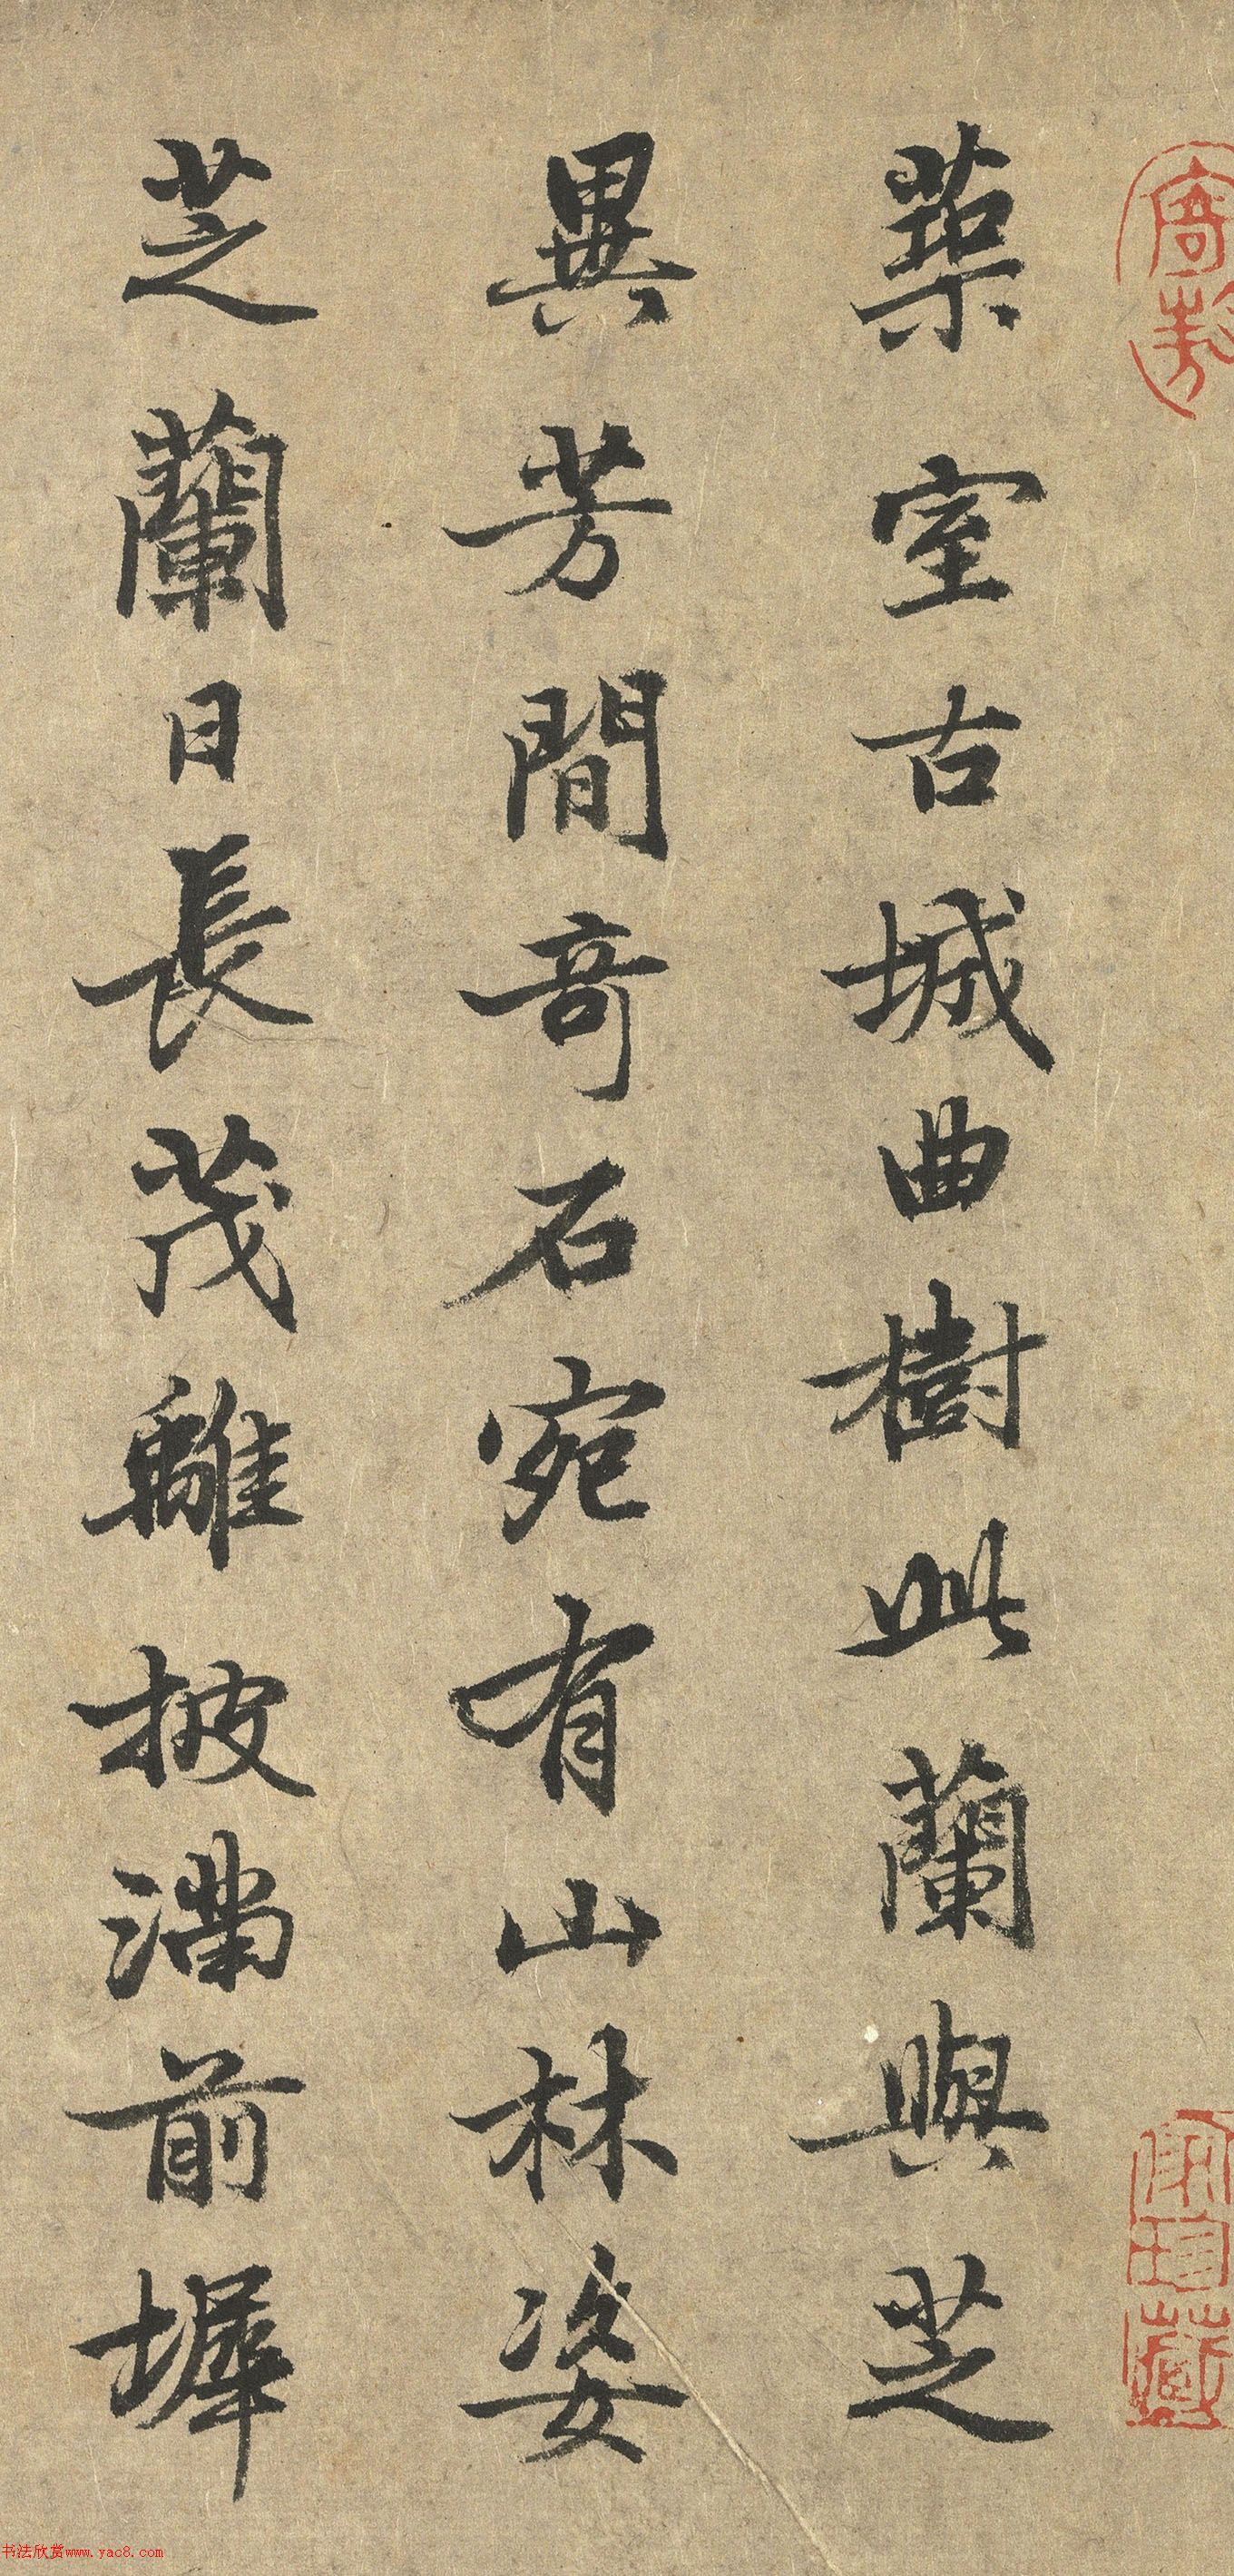 築室古城曲樹此蘭與芝
異芳間奇石宛有山林姿
芝蘭日長茂離披滿前墀
书法欣赏www.yac8.com